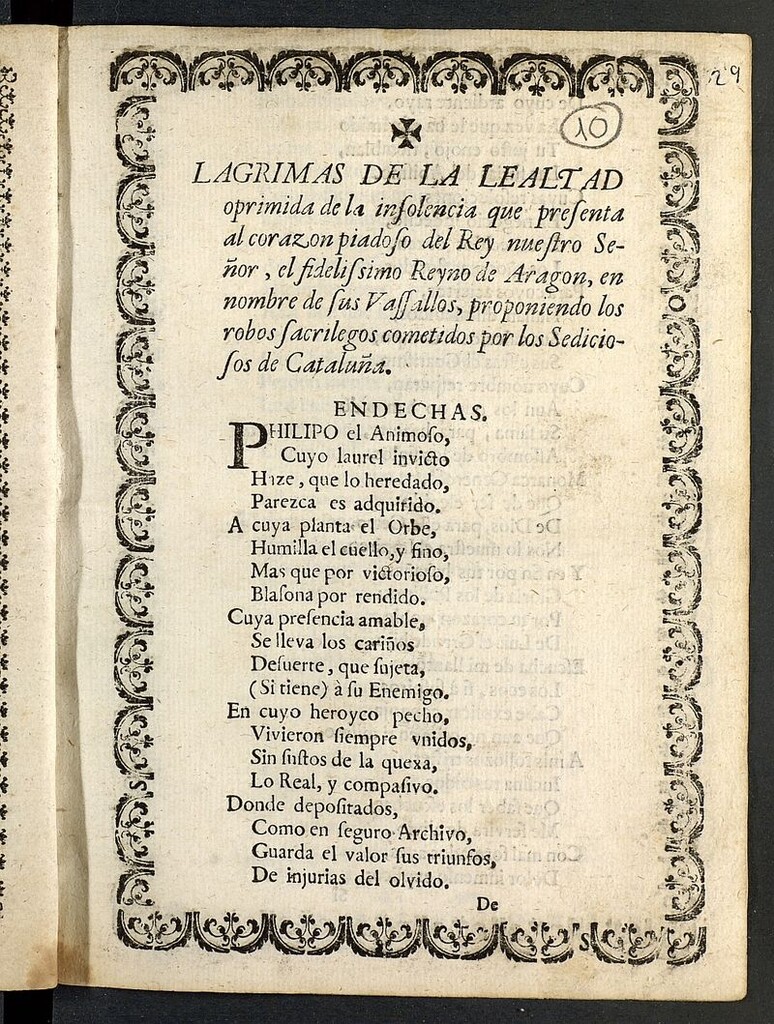 29
10
✠
LAGRIMAS DE LA LEALTAD
oprimida de la inſolencia que preſenta
al corazon piadoſo del Rey nueſtro Se-
ñor, el fideliſsimo Reyno de Aragon, en
nombre de ſus Vaſſallos, proponiendo los
robos ſacrilegos cometidos por los Sedicio-
ſos de Cataluña.
ENDECHAS.
PHILIPO el Animoſo,
Cuyo laurel invicto
Haze, que lo heredado,
Parezca es adquirido.
A cuya planta el Orbe,
Humilla el cuello, y fino,
Mas que por victorioſo,
Blaſona por rendido.
Cuya preſencia amable,
Se lleva los cariños
Deſuerte, que ſujeta,
(Si tiene) à ſu Enemigo.
En cuyo heroyco pecho,
Vivieron ſiempre vnidos,
Sin ſuſtos de la quexa,
Lo Real, y compaſivo.
Donde depoſitados,
Como en ſeguro Archivo,
Guarda el valor ſus triunfos,
De injurias del olvido.
De